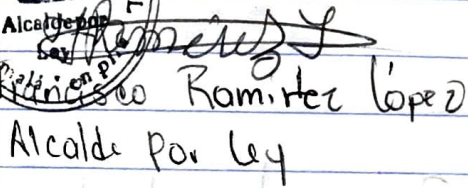 Alcalde por
Ley
Francisco Ramirez López
Alcalde Por Ley